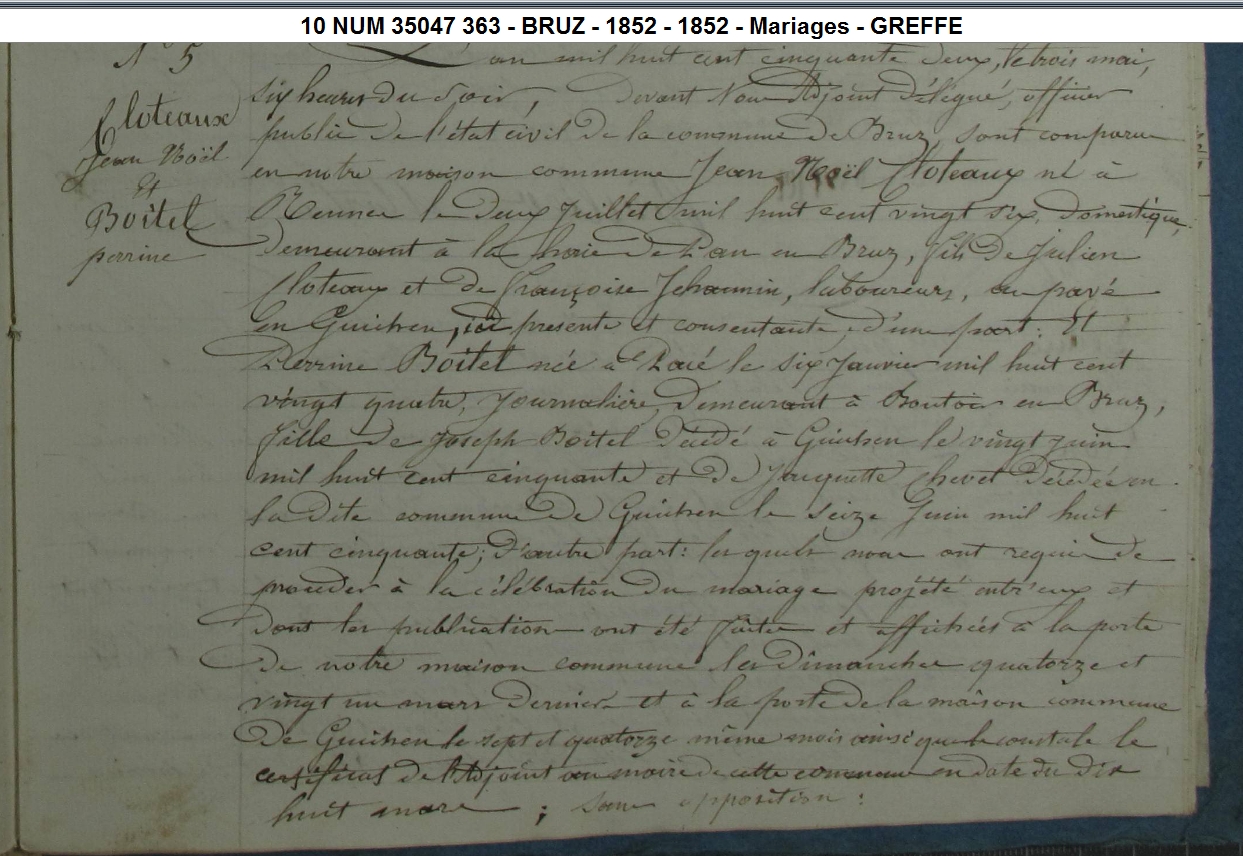 10 NUM 35047 363 - BRUZ - 1852 - 1852 - Mariages - GREFFE
N° 5
Cloteaux
Jean Noël
Et
Boitel
perrine
L'an mil huit cent cinquante deux, le trois mai,
six heures du soir, Devant Nous Adjoint délégué, officier
public de l'état civil de la commune de Bruz, sont comparu
en notre maison commune Jean Noël Cloteaux né à
Rennes le deux Juillet mil huit cent vingt six, domestique,
demeurant à la haie de Pan en Bruz, fils de Julien
Cloteaux et de françoise Jehannin, laboureurs, au pavé
en Guichen, ici présents et consentants, d'une part: Et
Perrine Boitel née à le six Janvier mil huit cent
vingt quatre, Journalière, demeurant à en Bruz,
fille de Joseph Boitel décédé à Guichen le vingt juin
mil huit cent cinquante et de Jacquette Chevet décédée en
la dite commune de Guichen le seize Juin mil huit
cent cinquante; d'autre part: lesquels nous ont requis de
procéder à la célébration du mariage projété entr'eux et
dont les publications ont été faites et affichées à la porte
de notre maison commune les Dimanches quatorze et
vingt un mars dernier et à la porte de la maison commune
de Guichen le sept et quatorze même mois ainsi que le constate le
certificat de l'Adjoint au maire de cette commune en date du dix
huit mars ; sans opposition :